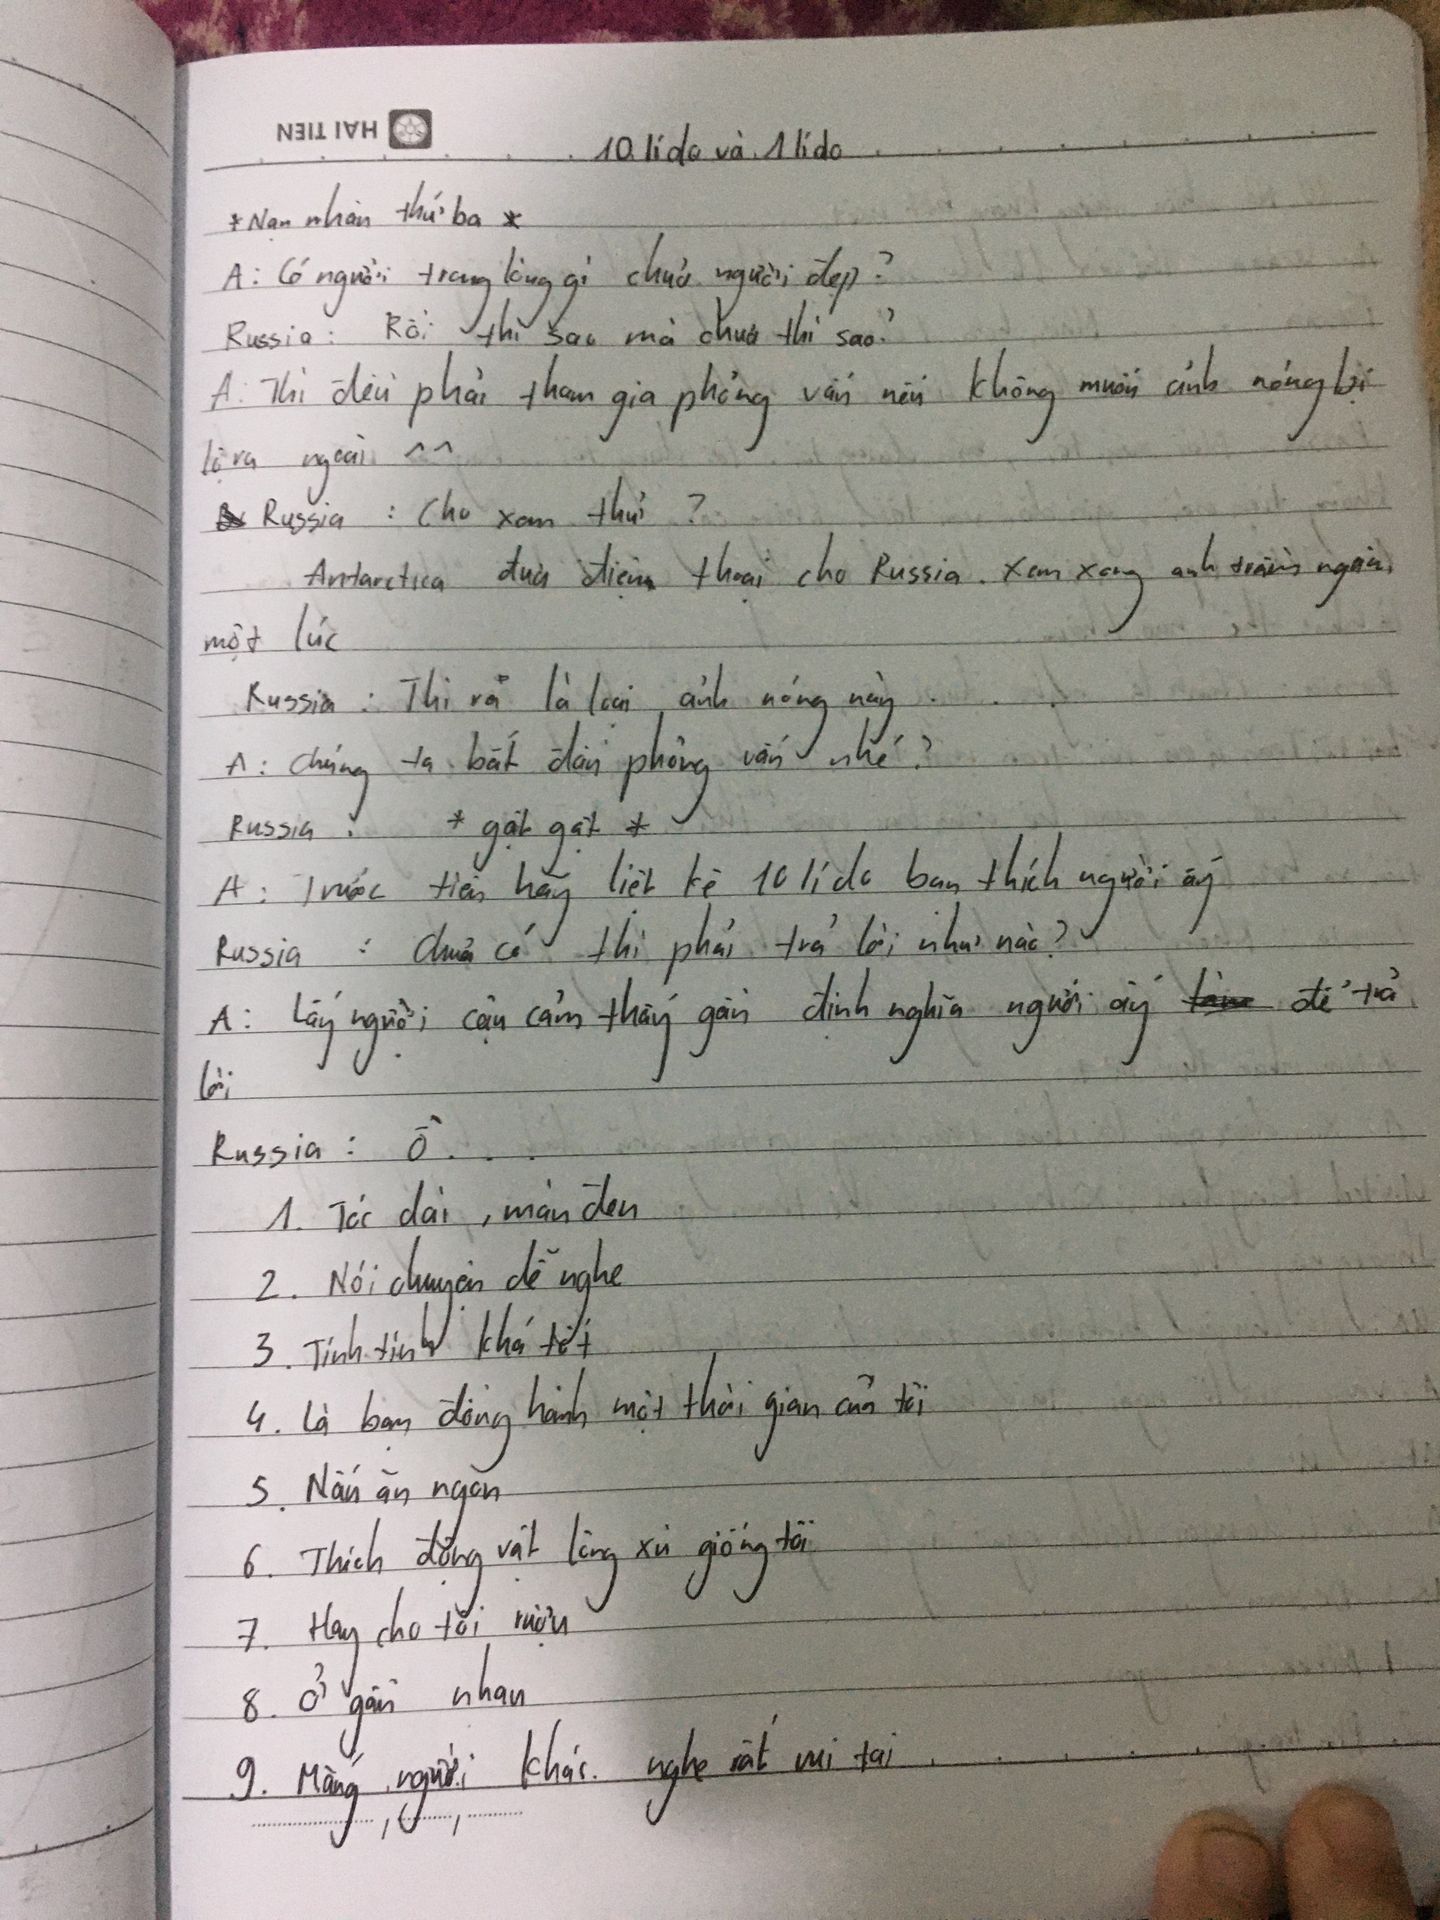 HẢI TIẾN
10 lí do và 1 lí do
*Nạn nhân thứ ba *
A: Có người trong lòng gì chưa người đẹp?
Russia: Rồi thì sao mà chưa thì sao?
A: Thì đều phải tham gia phỏng vấn nếu không muốn ảnh nóng bị
lộ ra ngoài ^^
Russia : Cho xem thử ?
Antarctica đưa điện thoại cho Russia. Xem xong anh trầm ngâm
một lúc
Russia : Thì ra là loại ảnh nóng này . . .
A: Chúng ta bắt đầu phỏng vấn nhé ?
Russia : * gật gật *
A: Trước tiên hãy liệt kê 10 lí do bạn thích người ấy
Russia : Chưa có thì phải trả lời như nào?
A: Lấy người cậu cảm thấy gần định nghĩa người ấy để trả
lời
Russia : Ồ . . .
1. Tóc dài , màu đen
2. Nói chuyện dễ nghe
3. Tính tình khá tốt
4. Là bạn đồng hành một thời gian của tôi
5. Nấu ăn ngon
6. Thích động vật lông xù giống tôi
7. Hay cho tôi rượu
8. Ở gần nhau
9. Mắng người khác nghe rất vui tai